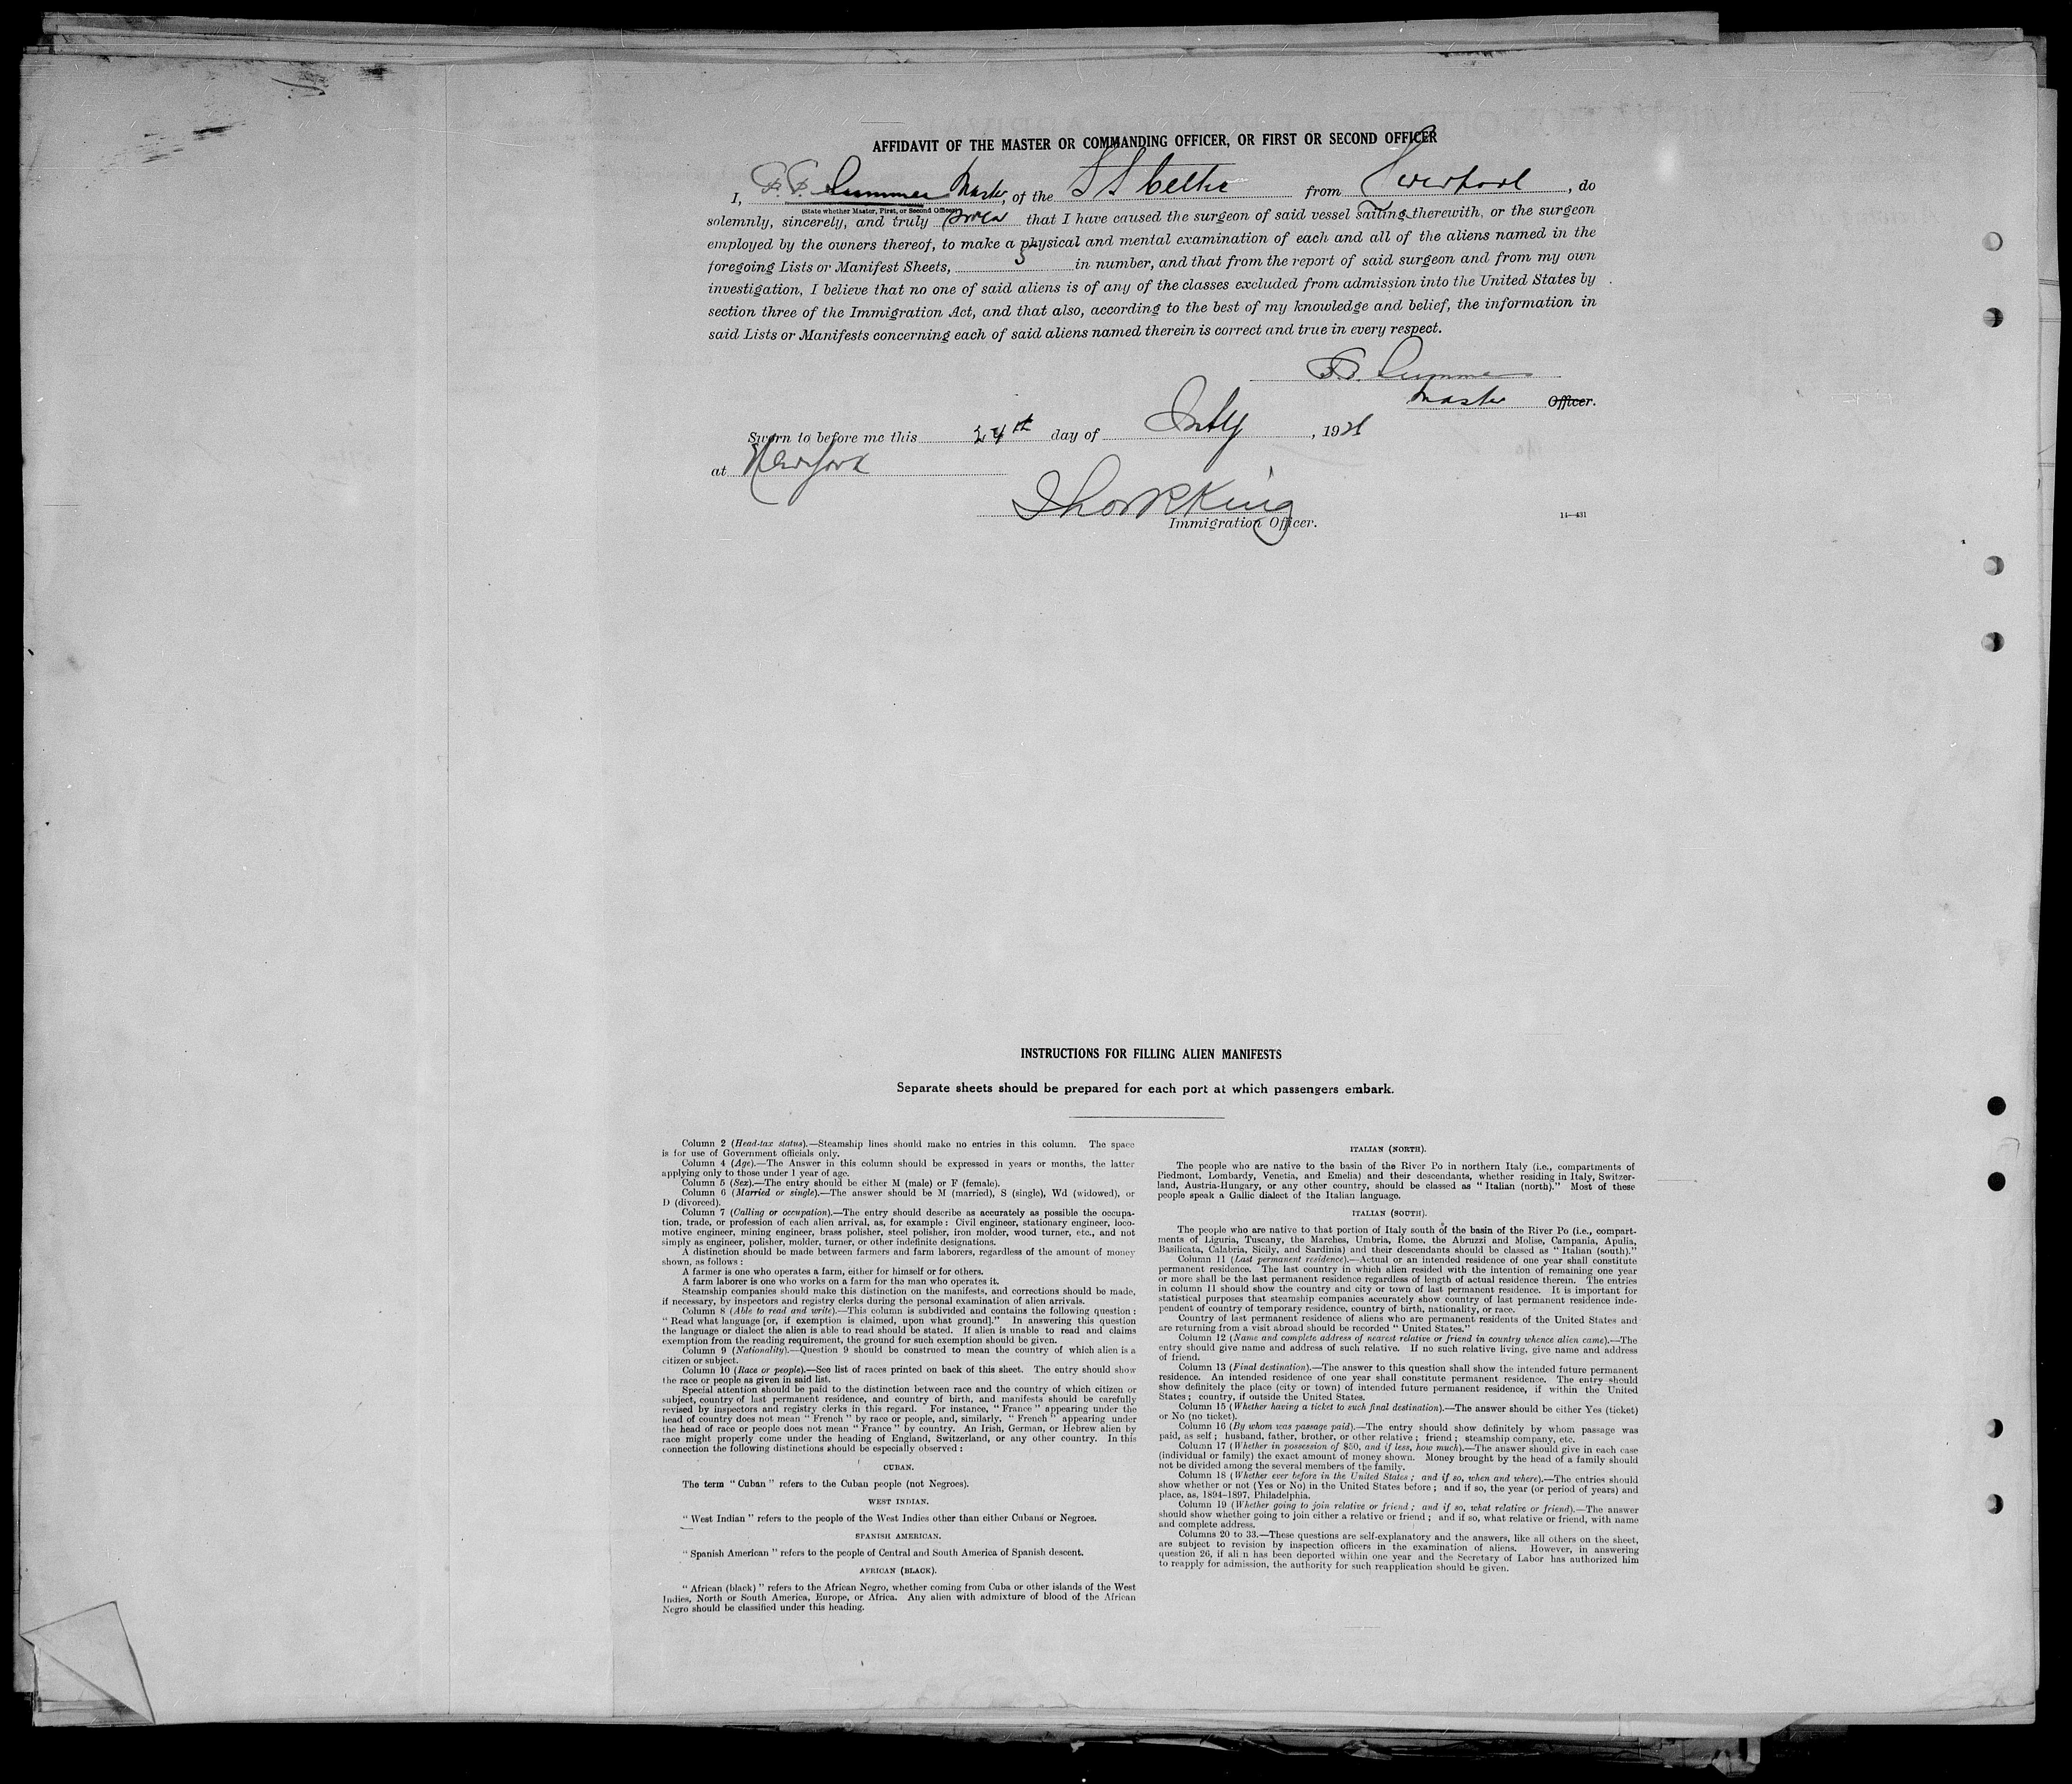 AFFIDAVIT OF THE MASTER OR COMMANDING OFFICER, OR FIRST OR SECOND OFFICER
I, Summer Master, of the SS Celtic from Liverpool, do
(State whether Master, First, or Second Officer)
solemnly, sincerely, and truly swear that I have caused the surgeon of said vessel sailing therewith, or the surgeon
employed by the owners thereof, to make a physical and mental examination of each and all of the aliens named in the
foregoing Lists or Manifest Sheets, 3 in number, and that from the report of said surgeon and from my own
investigation, I believe that no one of said aliens is of any of the classes excluded from admission into the United States by
section three of the Immigration Act, and that also, according to the best of my knowledge and belief, the information in
said Lists or Manifests concerning each of said aliens named therein is correct and true in every respect.
Master Officer.
Sworn to before me this 24th day of July, 1921
at New York
King
Immigration Officer.
14—431
INSTRUCTIONS FOR FILLING ALIEN MANIFESTS
Separate sheets should be prepared for each port at which passengers embark.
Column 2 (Head-tax status).—Steamship lines should make no entries in this column. The space
is for use of Government officials only.
Column 4 (Age).—The Answer in this column should be expressed in years or months, the latter
applying only to those under 1 year of age.
Column 5 (Sex).—The entry should be either M (male) or F (female).
Column 6 (Married or single).—The answer should be M (married), S (single), Wd (widowed), or
D (divorced).
Column 7 (Calling or occupation).—The entry should describe as accurately as possible the occupa-
tion, trade, or profession of each alien arrival, as, for example: Civil engineer, stationary engineer, loco-
motive engineer, mining engineer, brass polisher, steel polisher, iron molder, wood turner, etc., and not
simply as engineer, polisher, molder, turner, or other indefinite designations.
A distinction should be made between farmers and farm laborers, regardless of the amount of money
shown, as follows:
A farmer is one who operates a farm, either for himself or for others.
A farm laborer is one who works on a farm for the man who operates it.
Steamship companies should make this distinction on the manifests, and corrections should be made,
if necessary, by inspectors and registry clerks during the personal examination of alien arrivals.
Column 8 (Able to read and write).—This column is subdivided and contains the following question:
"Read what language [or, if exemption is claimed, upon what ground]." In answering this question
the language or dialect the alien is able to read should be stated. If alien is unable to read and claims
exemption from the reading requirement, the ground for such exemption should be given.
Column 9 (Nationality).—Question 9 should be construed to mean the country of which alien is a
citizen or subject.
Column 10 (Race or people).—See list of races printed on back of this sheet. The entry should show
the race or people as given in said list.
Special attention should be paid to the distinction between race and the country of which citizen or
subject, country of last permanent residence, and country of birth, and manifests should be carefully
revised by inspectors and registry clerks in this regard. For instance, "France" appearing under the
head of country does not mean "French" by race or people, and, similarly, "French" appearing under
the head of race or people does not mean "France" by country. An Irish, German, or Hebrew alien by
race might properly come under the heading of England, Switzerland, or any other country. In this
connection the following distinctions should be especially observed:
CUBAN.
The term "Cuban" refers to the Cuban people (not Negroes).
WEST INDIAN.
"West Indian" refers to the people of the West Indies other than either Cubans or Negroes.
SPANISH AMERICAN.
"Spanish American" refers to the people of Central and South America of Spanish descent.
AFRICAN (BLACK).
"African (black)" refers to the African Negro, whether coming from Cuba or other islands of the West
Indies, North or South America, Europe, or Africa. Any alien with admixture of blood of the African
Negro should be classified under this heading.
ITALIAN (NORTH).
The people who are native to the basin of the River Po in northern Italy (i.e., compartments of
Piedmont, Lombardy, Venetia, and Emelia) and their descendants, whether residing in Italy, Switzer-
land, Austria-Hungary, or any other country, should be classed as "Italian (north)." Most of these
people speak a Gallic dialect of the Italian language.
ITALIAN (SOUTH).
The people who are native to that portion of Italy south of the basin of the River Po (i.e., compart-
ments of Liguria, Tuscany, the Marches, Umbria, Rome, the Abruzzi and Molise, Campania, Apulia,
Basilicata, Calabria, Sicily, and Sardinia) and their descendants should be classed as "Italian (south)."
Column 11 (Last permanent residence).—Actual or an intended residence of one year shall constitute
permanent residence. The last country in which alien resided with the intention of remaining one year
or more shall be the last permanent residence regardless of length of actual residence therein. The entries
in column 11 should show the country and city or town of last permanent residence. It is important for
statistical purposes that steamship companies accurately show country of last permanent residence inde-
pendent of country of temporary residence, country of birth, nationality, or race.
Country of last permanent residence of aliens who are permanent residents of the United States and
are returning from a visit abroad should be recorded "United States."
Column 12 (Name and complete address of nearest relative or friend in country whence alien came).—The
entry should give name and address of such relative. If no such relative living, give name and address
of friend.
Column 13 (Final destination).—The answer to this question shall show the intended future permanent
residence. An intended residence of one year shall constitute permanent residence. The entry should
show definitely the place (city or town) of intended future permanent residence, if within the United
States; country, if outside the United States.
Column 15 (Whether having a ticket to such final destination).—The answer should be either Yes (ticket)
or No (no ticket).
Column 16 (By whom was passage paid).—The entry should show definitely by whom passage was
paid, as self; husband, father, brother, or other relative; friend; steamship company, etc.
Column 17 (Whether in possession of $50, and if less, how much).—The answer should give in each case
(individual or family) the exact amount of money shown. Money brought by the head of a family should
not be divided among the several members of the family.
Column 18 (Whether ever before in the United States; and if so, when and where).—The entries should
show whether or not (Yes or No) in the United States before; and if so, the year (or period of years) and
place, as, 1894–1897, Philadelphia.
Column 19 (Whether going to join relative or friend; and if so, what relative or friend).—The answer
should show whether going to join either a relative or friend; and if so, what relative or friend, with name
and complete address.
Columns 20 to 33.—These questions are self-explanatory and the answers, like all others on the sheet,
are subject to revision by inspection officers in the examination of aliens. However, in answering
question 26, if alien has been deported within one year and the Secretary of Labor has authorized him
to reapply for admission, the authority for such reapplication should be given.